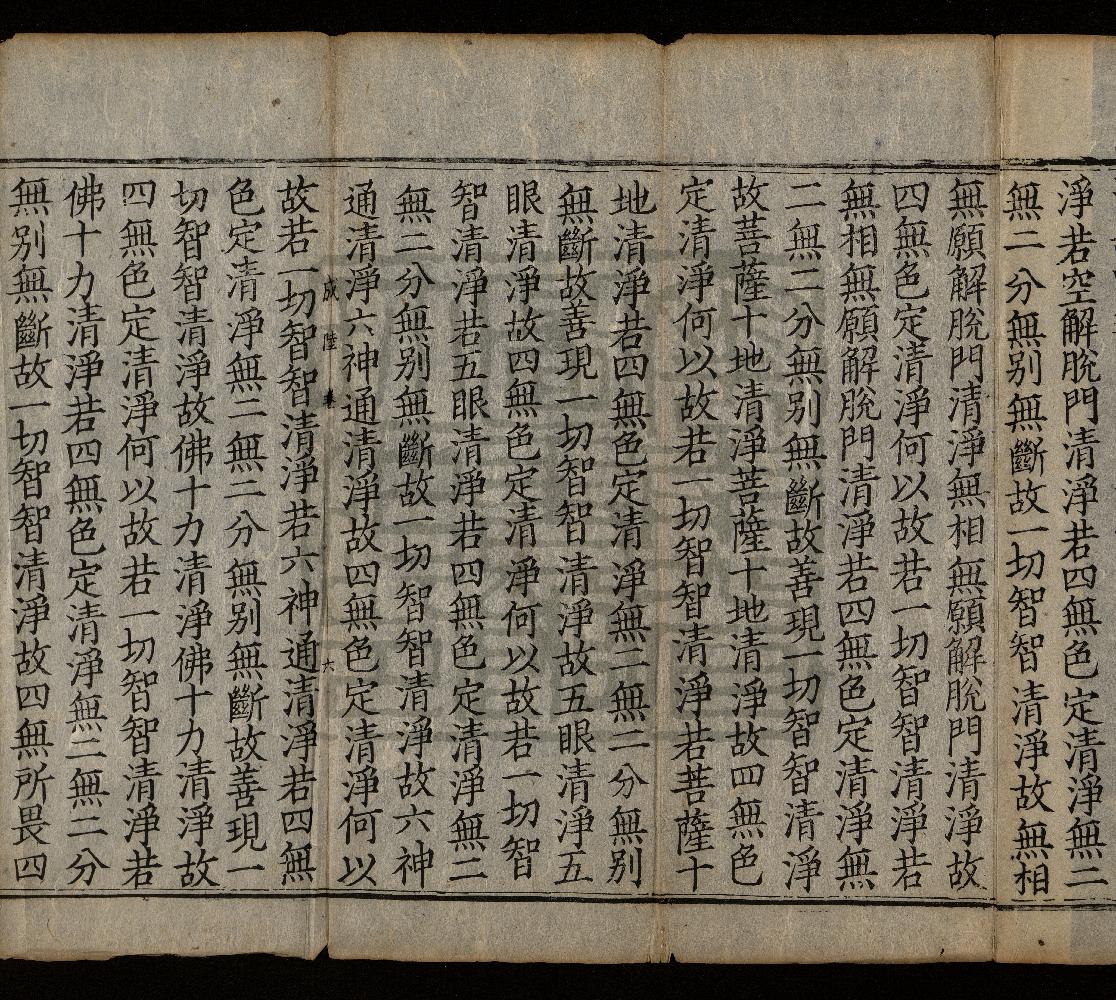 淨若空解脫門清淨若四無色定清淨無二
無二分無別無斷故一切智智清淨故無相
無願解脫門清淨無相無願解脫門清淨故
四無色定清淨何以故若一切智智清淨若
無相無願解脫門清淨若四無色定清淨無
二無二分無別無斷故善現一切智智清淨
故菩薩十地清淨菩薩十地清淨故四無色
定清淨何以故若一切智智清淨若菩薩十
地清淨若四無色定清淨無二無二分無別
無斷故善現一切智智清淨故五眼清淨五
眼清淨故四無色定清淨何以故若一切智
智清淨若五眼清淨若四無色定清淨無二
無二分無別無斷故一切智智清淨故六神
通清淨六神通清淨故四無色定清淨何以
六
故若一切智智清淨若六神通清淨若四無
色定清淨無二無二分無別無斷故善現一
切智智清淨故佛十力清淨佛十力清淨故
四無色定清淨何以故若一切智智清淨若
佛十力清淨若四無色定清淨無二無二分
無別無斷故一切智智清淨故四無所畏四